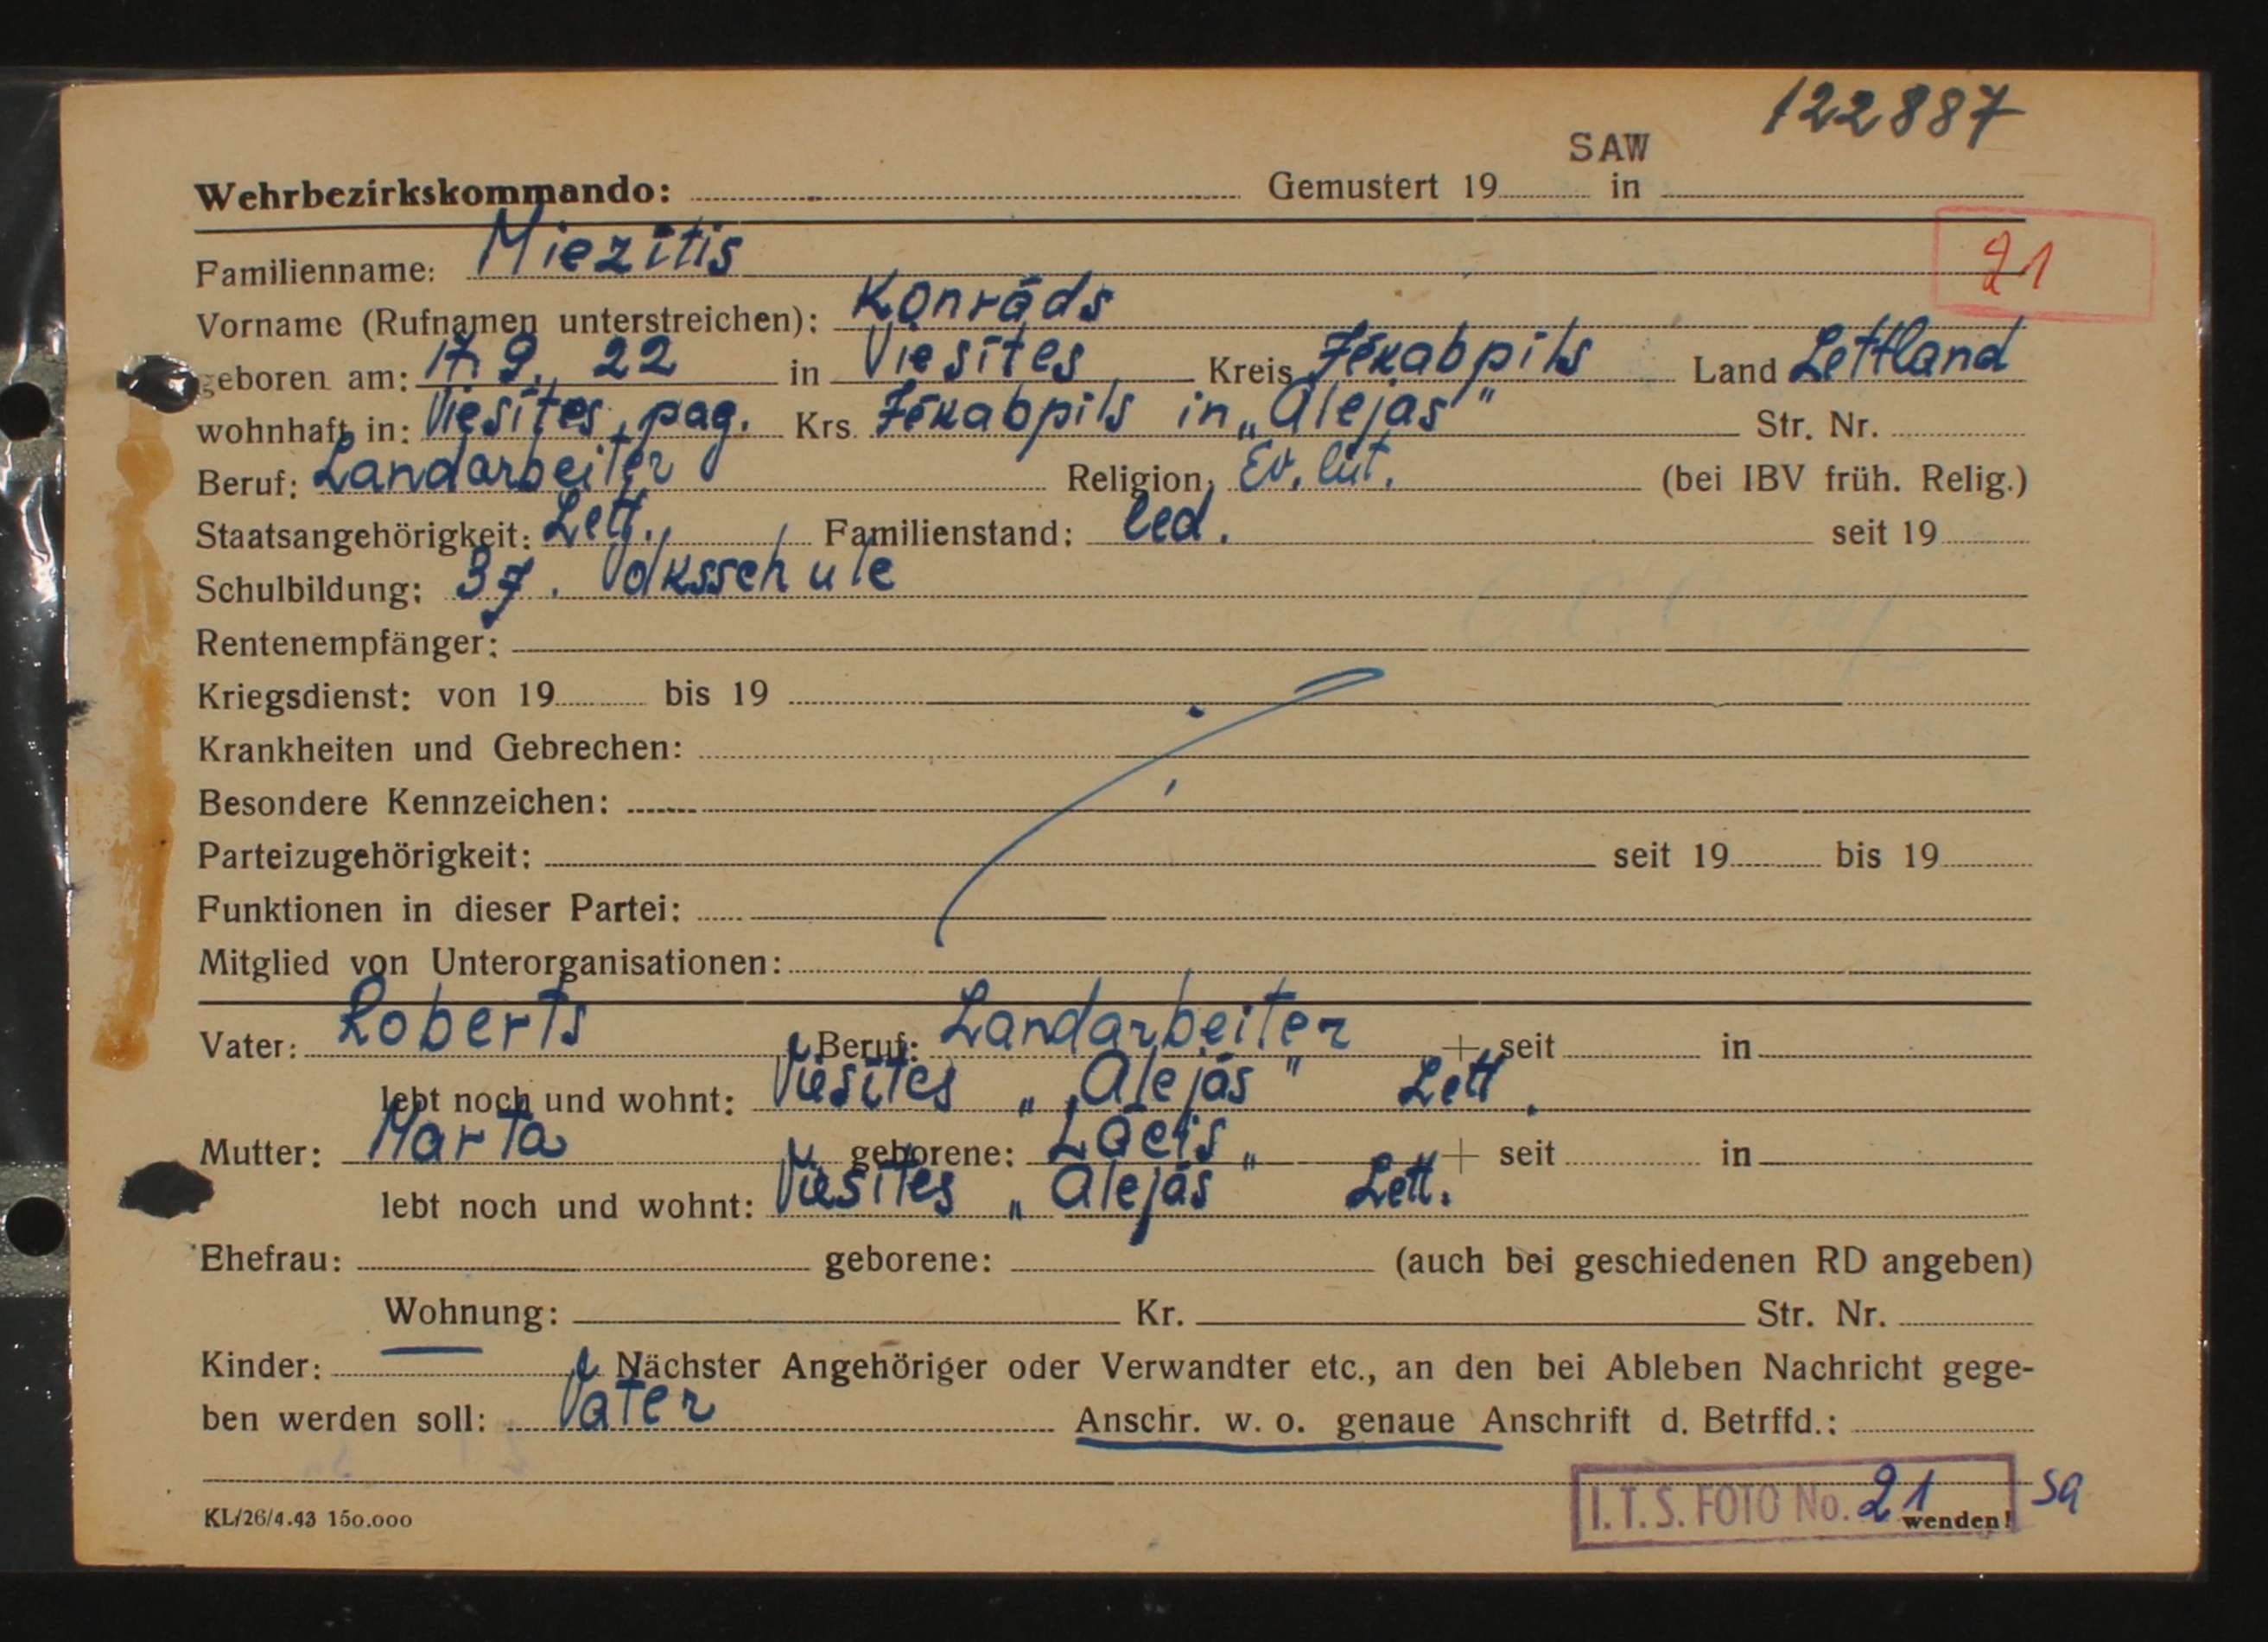 122887
SAW
Wehrbezirkskommando: Gemustert 19 in
21
Familienname: Miezītis
Vorname (Rufnamen unterstreichen): Konrāds
geboren am: 17. 9. 22 in Viesītes Kreis Jēkabpils Land Lettland
wohnhaft in: Viesītes, pag. Krs. Jēkabpils in „Alejas" Str. Nr.
Beruf: Landarbeiter Religion: Ev. lut. (bei IBV früh. Relig.)
Staatsangehörigkeit: Lett. Familienstand: led. seit 19
Schulbildung: Volksschule
Rentenempfänger:
Kriegsdienst: von 19 bis 19
Krankheiten und Gebrechen:
Besondere Kennzeichen:
Parteizugehörigkeit: seit 19 bis 19
Funktionen in dieser Partei:
Mitglied von Unterorganisationen:
Vater: Roberts Beruf: Landarbeiter + seit in
lebt noch und wohnt: Viesītes „Alejās" Lett.
Mutter: Marta geborene: Lācis + seit in
lebt noch und wohnt: Viesītes „Alejās" Lett.
Ehefrau: geborene: (auch bei geschiedenen RD angeben)
Wohnung: Kr. Str. Nr.
Kinder: Nächster Angehöriger oder Verwandter etc., an den bei Ableben Nachricht gege-
ben werden soll: Vater Anschr. w. o. genaue Anschrift d. Betrffd.:
KL/26/4.43 150.000 I.T.S. FOTO No. 21 wenden! Sa